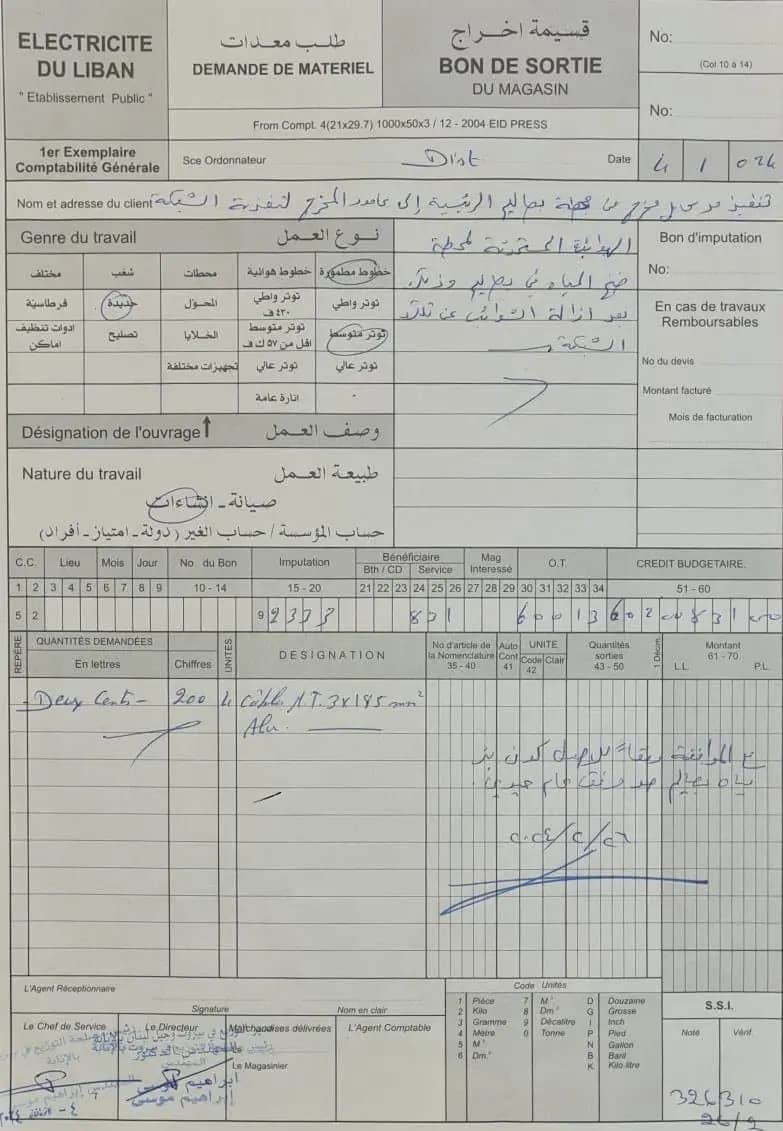 ELECTRICITE
DU LIBAN
" Etablissement Public "
طلب معدات
DEMANDE DE MATERIEL
قسيمة اخراج
BON DE SORTIE
DU MAGASIN
No:
(Col 10 à 14)
No:
From Compt. 4(21x29.7) 1000x50x3 / 12 - 2004 EID PRESS
1er Exemplaire
Comptabilité Générale
Sce Ordonnateur Dist Date 4 1 024
Nom et adresse du client تنفيذ مخرج من محطة بصاليم الرئيسية إلى عامود المخرج لتغذية الشبكة
الهوائية لمحطة
ضخ المياه في بصاليم وذلك
بعد ازالة الشوائب عن تلك
الشبكة
Genre du travail نوع العمل
Bon d'imputation
No:
مختلف شغب محطات خطوط هوائية خطوط مطمورة
قرطاسيّة جديدة المحوّل توتر واطي ٤٣٠ ف توتر واطي
ادوات تنظيف اماكن تصليح الخلايا توتر متوسط اقل من ٥٧ ك ف توتر متوسط
تجهيزات مختلفة توتر عالي توتر عالي
انارة عامة -
En cas de travaux
Remboursables
No du devis
Montant facturé
Mois de facturation
Désignation de l'ouvrage وصف العمل
Nature du travail طبيعة العمل
صيانة - انشاءات
حساب المؤسسة / حساب الغير (دولة - امتياز - أفراد)
C.C. Lieu Mois Jour No du Bon Imputation Bénéficiaire Mag Interessé O.T. CREDIT BUDGETAIRE.
Bth / CD Service
1 2 3 4 5 6 7 8 9 10 - 14 15 - 20 21 22 23 24 25 26 27 28 29 30 31 32 33 34 51 - 60
5 2 9 2 3 7 7 8 2 1 6 0 0 1 3
REPÈRE QUANTITÉS DEMANDÉES UNITÉS DESIGNATION No d'article de la Nomenclature 35 - 40 Auto Cont 41 UNITE Quantités sorties 43 - 50 1 Décom. Montant 61 - 70
En lettres Chiffres Code 42 Clair L.L. P.L.
- Deux Cents - 200 4 Câble M.T. 3x185 mm²
Alu.
مع الموافقة وفقاً للاصول
٢٠٢٤/٢/٢٦
L'Agent Réceptionnaire
Signature Nom en clair
Le Chef de Service Le Directeur Marchandises délivrées L'Agent Comptable
Le
Le Magasinier
ابراهيم موسى
ابراهيم موسى
Code Unités
1 Pièce 7 M³ D Douzaine
2 Kilo 8 Dm³ G Grosse
3 Gramme 9 Décalitre I Inch
4 Mètre 0 Tonne P Pied
5 M² N Gallon
6 Dm² B Baril
K Kilo litre
S.S.I.
Noté Vérif.
326310
26/2